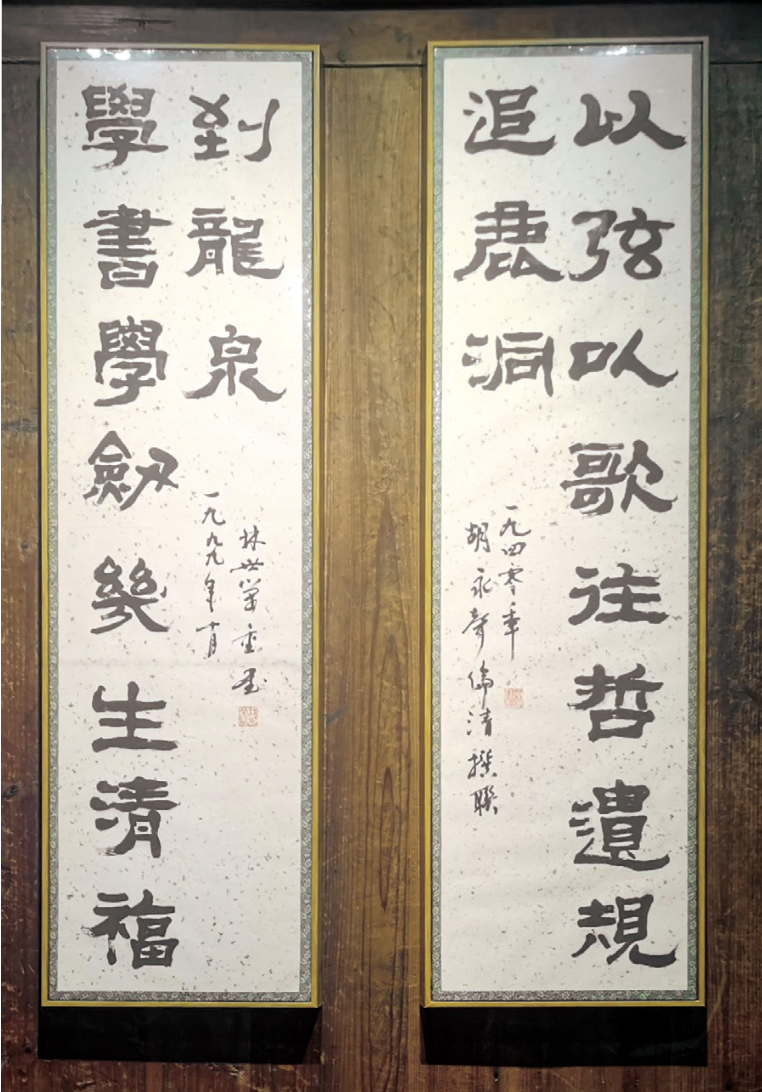 以弦以歌往哲遺規
追鹿洞
一九四零年
胡永聲倫清撰聯
學書學劒幾生清福
到龍泉
林世堂重書
一九九九年十月